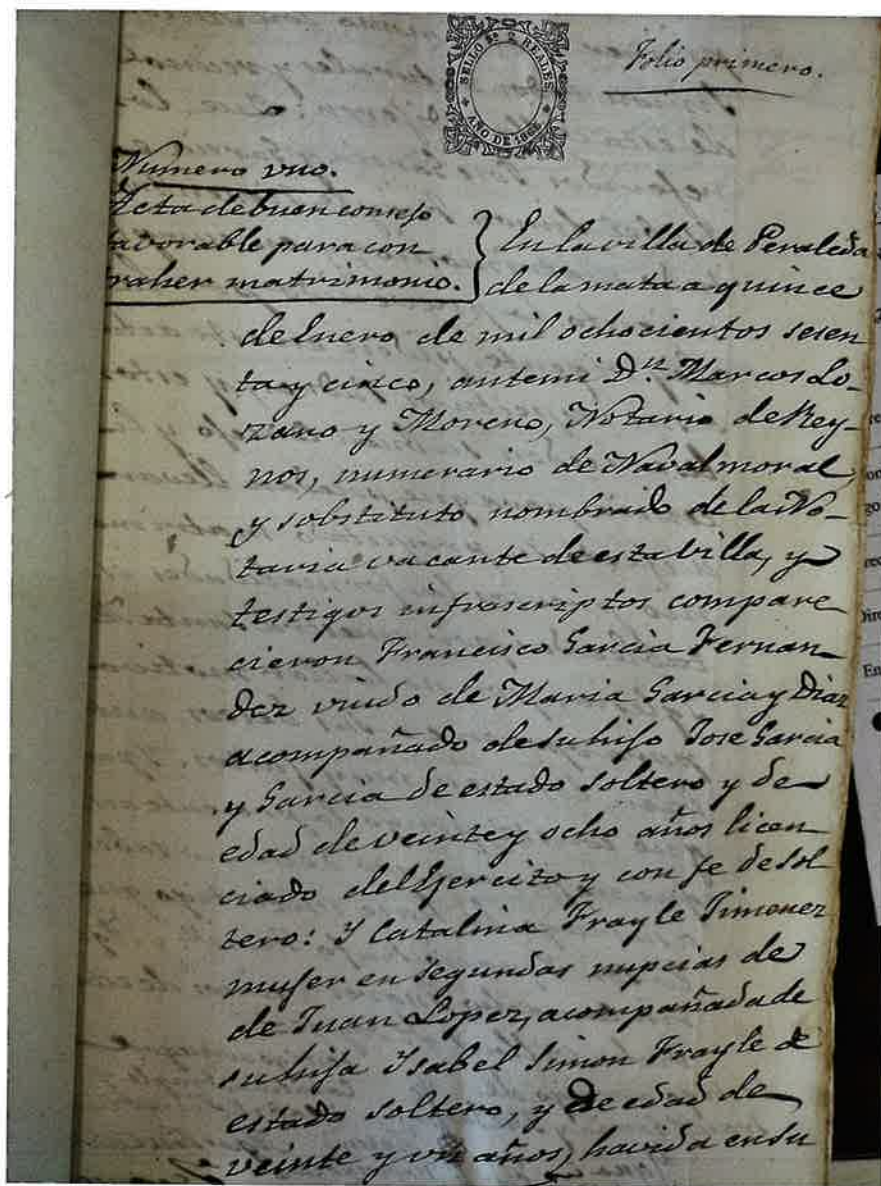 SELLO 9º 2 REALES
AÑO DE 1865
Folio primero.
Numero uno.
Acta de buen consejo
favorable para con
traher matrimonio.
En la villa de Peraleda
de la mata a quince
de Enero de mil ochocientos sesen
ta y cinco, antemi Dn. Marcos Lo-
zano y Moreno, Notario de Rey-
nos, numerario de Navalmoral,
y sobstituto nombrado de la No-
taria vacante de esta villa, y
testigos infrascriptos compare
cieron Francisco Garcia Fernan-
dez viudo de Maria Garcia y Diaz
acompañado de su hijo Jose Garcia
y Garcia de estado soltero y de
edad de veinte y ocho años licen
ciado del Ejercito y con fe de sol
tero: Y Catalina Frayle Jimenez
mujer en segundas nupcias de
de Juan Lopez, acompañada de
su hija Ysabel Simon Frayle de
estado soltero, y de edad de
veinte y un años, havida en su